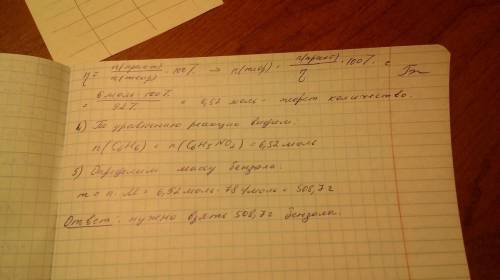 η = n(практ)/n(теор) · 100% → n(теор) = n(практ)/η · 100% =
= 6 моль · 100%/92% = 6,52 моль - теорет количество.
4) По уравнению реакции видим:
n(C6H6) = n(C6H5NO2) = 6,52 моль
5) Определим массу бензола:
m = n · M = 6,52 моль · 78 г/моль = 508,7 г
Ответ: нужно взять 508,7 г бензола.